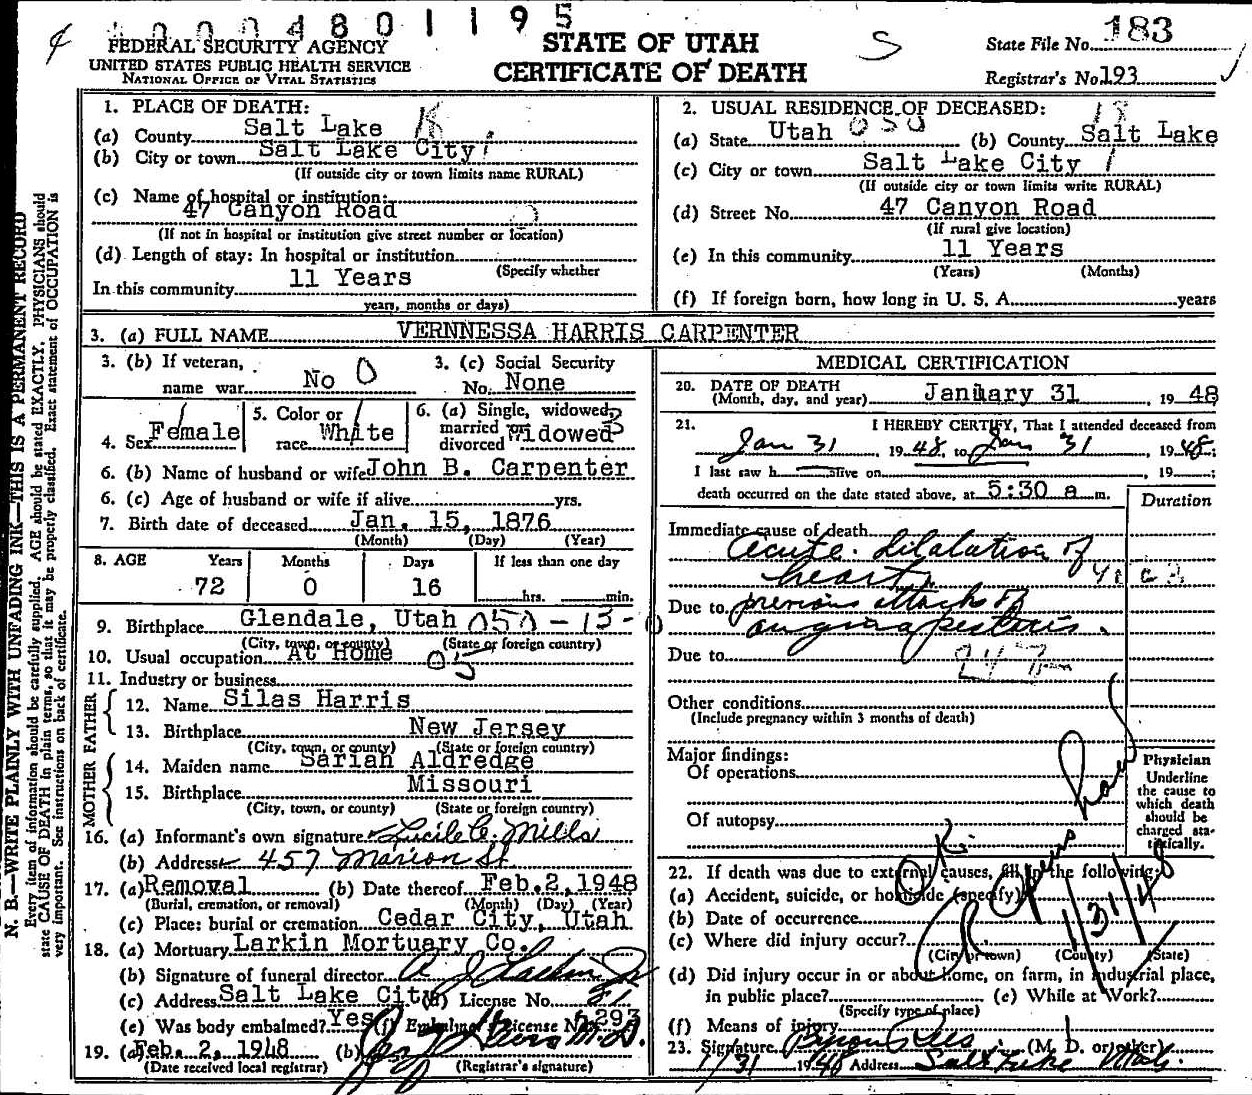 0004801195
FEDERAL SECURITY AGENCY
UNITED STATES PUBLIC HEALTH SERVICE
NATIONAL OFFICE OF VITAL STATISTICS
STATE OF UTAH
CERTIFICATE OF DEATH
S
State File No. 183
Registrar's No. 193
N. B.—WRITE PLAINLY WITH UNFADING INK—THIS IS A PERMANENT RECORD
Every item of information should be carefully supplied. AGE should be stated EXACTLY. PHYSICIANS should
state CAUSE OF DEATH in plain terms, so that it may be properly classified. Exact statement of OCCUPATION is
very important. See instructions on back of certificate.
1. PLACE OF DEATH:
(a) County Salt Lake 18
(b) City or town Salt Lake City 1
(If outside city or town limits name RURAL)
(c) Name of hospital or institution:
47 Canyon Road
(If not in hospital or institution give street number or location)
(d) Length of stay: In hospital or institution
(Specify whether
In this community 11 Years
years, months or days)
2. USUAL RESIDENCE OF DECEASED: 18
(a) State Utah 050 (b) County Salt Lake
(c) City or town Salt Lake City 1
(If outside city or town limits write RURAL)
(d) Street No. 47 Canyon Road
(If rural give location)
(e) In this community 11 Years
(Years) (Months)
(f) If foreign born, how long in U. S. A. years
3. (a) FULL NAME VERNNESSA HARRIS CARPENTER
3. (b) If veteran, name war No 0
3. (c) Social Security No. None
4. Sex Female 1
5. Color or race White 1
6. (a) Single, widowed, married or divorced Widowed 3
6. (b) Name of husband or wife John B. Carpenter
6. (c) Age of husband or wife if alive yrs.
7. Birth date of deceased Jan. 15, 1876
(Month) (Day) (Year)
8. AGE Years Months Days If less than one day
72 0 16 hrs. min.
9. Birthplace Glendale, Utah 050-13-0
(City, town, or county) (State or foreign country)
10. Usual occupation At Home 05
11. Industry or business
FATHER
12. Name Silas Harris
13. Birthplace New Jersey
(City, town, or county) (State or foreign country)
MOTHER
14. Maiden name Sariah Aldredge
15. Birthplace Missouri
(City, town, or county) (State or foreign country)
16. (a) Informant's own signature Lucile C. Mills
(b) Address 457 Marion St
17. (a) Removal (b) Date thereof Feb.2,1948
(Burial, cremation, or removal) (Month) (Day) (Year)
(c) Place: burial or cremation Cedar City, Utah
18. (a) Mortuary Larkin Mortuary Co.
(b) Signature of funeral director A J Larkin Jr
(c) Address Salt Lake City (d) License No. 81
(e) Was body embalmed? Yes (f) Embalmer's License No. 293
19. (a) Feb. 2, 1948 (b) M.D.
(Date received local registrar) (Registrar's signature)
MEDICAL CERTIFICATION
20. DATE OF DEATH
(Month, day, and year) January 31, 1948
21. I HEREBY CERTIFY, That I attended deceased from
Jan 31, 1948, to Jan 31, 1948;
I last saw h alive on, 19;
death occurred on the date stated above, at 5:30 a m.
Duration
Immediate cause of death
Acute dilatation of
heart
Due to previous attacks of
angina pectoris.
Due to
Other conditions
(Include pregnancy within 3 months of death)
Major findings:
Of operations
Of autopsy
Physician
Underline
the cause to
which death
should be
charged sta-
tistically.
22. If death was due to external causes, fill in the following:
(a) Accident, suicide, or homicide (specify)
(b) Date of occurrence
(c) Where did injury occur?
(City or town) (County) (State)
(d) Did injury occur in or about home, on farm, in industrial place,
in public place? (e) While at Work?
(Specify type of place)
(f) Means of injury
O.K.
1/31/48
23. Signature Byron Rees (M. D. or other)
1/31 1948 Address Salt Lake Utah.